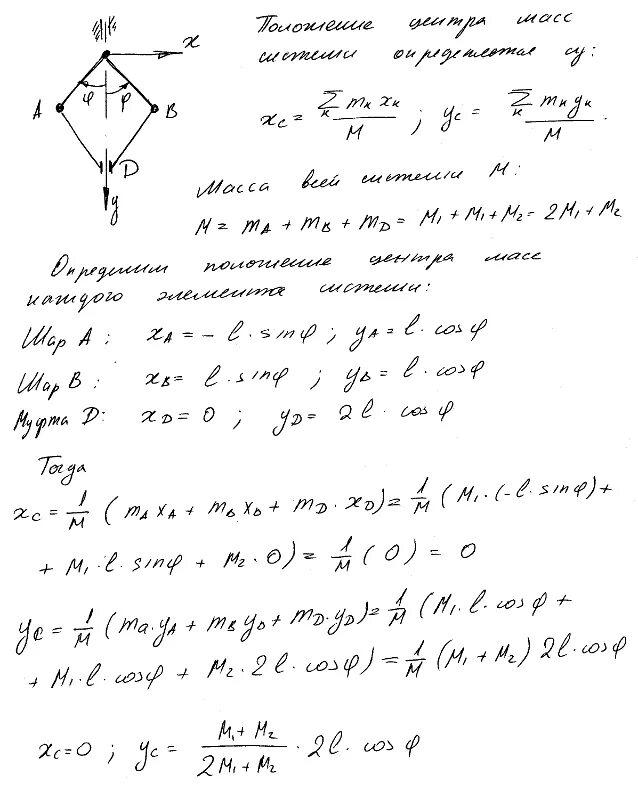 Положение центра масс
системы определяется су:
x
φ φ
A B
D
y
xc = Σk mk xk / M ; yc = Σk mk yk / M .
Масса всей системы M:
M = mA + mB + mD = M1 + M1 + M2 = 2M1 + M2
Определим положение центра масс
каждого элемента системы:
Шар A: xA = - l · sinφ ; yA = l · cosφ
Шар B: xB = l · sinφ ; yB = l · cosφ
Муфта D: xD = 0 ; yD = 2l · cosφ
Тогда
xc = 1/M (mA xA + mB xB + mD · xD) = 1/M (M1 · (-l · sinφ) +
+ M1 · l · sinφ + M2 · 0) = 1/M (0) = 0
yc = 1/M (ma · yA + mB yB + mD · yD) = 1/M (M1 · l · cosφ +
+ M1 · l · cosφ + M2 · 2l · cosφ) = 1/M (M1 + M2) 2l · cosφ
xc = 0 ; yc = M1 + M2 / 2M1 + M2 · 2l · cosφ